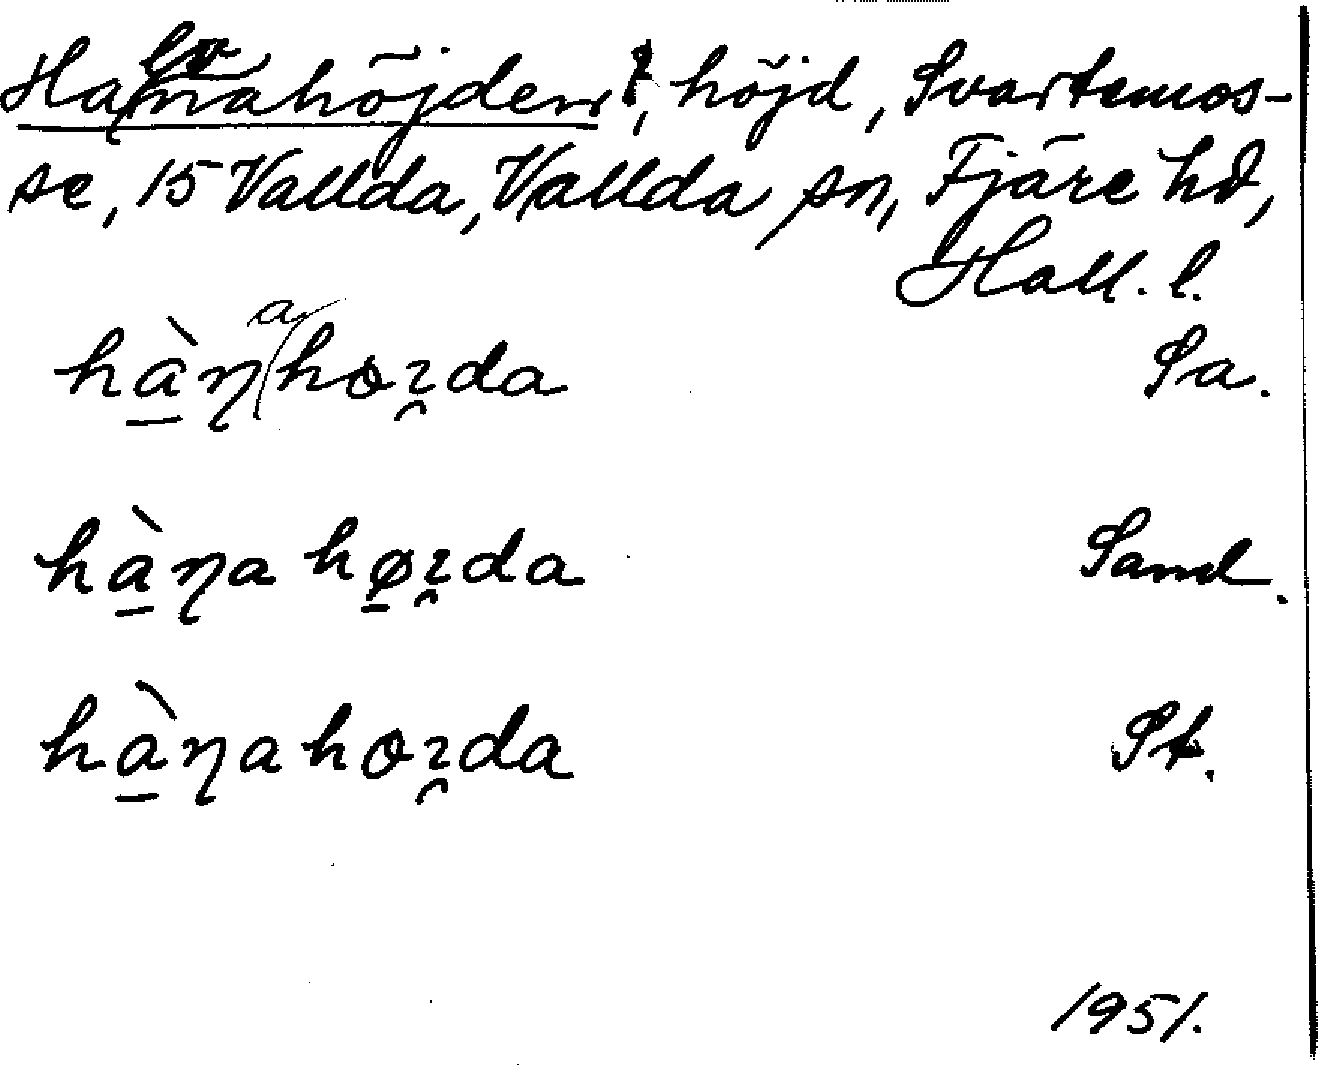 Halvnahöjden?, höjd, Svartemos-
se, 15 Vallda, Vallda sn, Fjäre hd,
Hall. l.
hàŋahoʅda Sa.
hàŋahøʅda Sand.
hàŋahoʅda St.
1951.